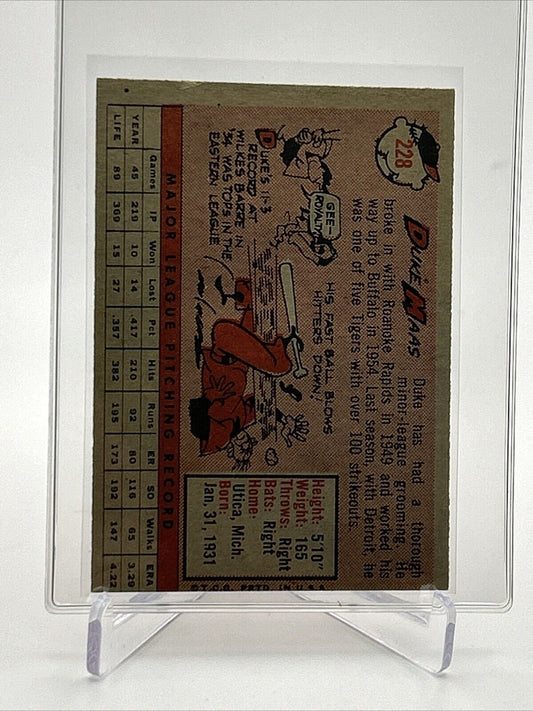 228
DUKE MAAS
Duke has had a thorough
minor-league grooming. He
broke in with Roanoke Rapids in 1949 and worked his
way up to Buffalo in 1954. Last season, with Detroit, he
was one of five Tigers with over 100 strikeouts.
GEE—
ROYALTY!
DUKE'S 11-3
RECORD AT
WILKES BARRE IN
'54 WAS TOPS IN THE
EASTERN LEAGUE
HIS FAST BALL BLOWS
HITTERS DOWN!
Height: 5'10"
Weight: 165
Throws: Right
Bats: Right
Home:
Utica, Mich.
Born:
Jan. 31, 1931
MAJOR LEAGUE PITCHING RECORD
Games IP Won Lost Pct Hits Runs ER SO Walks ERA
YEAR 45 219 10 14 .417 210 92 80 116 65 3.29
LIFE 89 369 15 27 .357 382 195 173 192 147 4.22